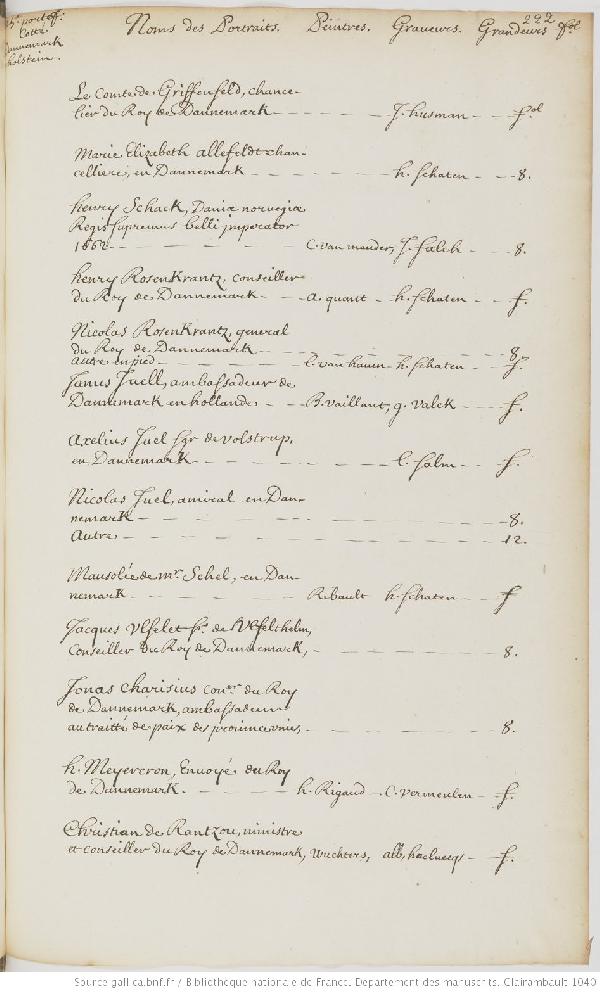 222
5e. portef.
Cotté
Dannemark
holstein.
Noms des Portraits. Peintres. Graveurs. Grandeurs fol
Le Comte de Griffenfeld, chance-
lier du Roy de Dannemark - J. husman - fol
Marie Elizabeth allefeldt chan-
celliere, en Dannemark - h. schaten - 8.
henry Schack, Daniæ norvegiæ
Regis supremus belli imperator
1662 - C. van mander, J. falck - 8.
henry RosenKrantz, conseiller
du Roy de Dannemark - a. quant - h. schaten - f.
Nicolas RosenKrantz, general
du Roy de Dannemark - 8.
autre en pied - l. van hauen - h. schaten - f.
Janus Juell, ambassadeur de
Dannemark en hollande. - B. vaillant, g. valck - f.
Axelius Juel sgr de volstrup,
en Dannemark - l. salm - f.
Nicolas Juel, amiral en Dan-
nemark - 8.
Autre - 12.
Mausolée de mr. Schel, en Dan-
nemark - Ribault h. schaten - f
Jacques Ulfelet sr. de
Conseiller du Roy de Dannemark, - 8.
Jonas Charisius coner. du Roy
de Dannemark, ambassadeur
au traitté de paix des provinces unies, - 8.
h. Meyercron, Envoyé du Roy
de Dannemark. - h. Rigaud - C. vermeulen - f.
Christian de Rantzou, ministre
et conseiller du Roy de Dannemark, wuchters, alb. haelwecq - f.
Source gallica.bnf.fr / Bibliothèque nationale de France. Département des manuscrits. Clairambault 1040